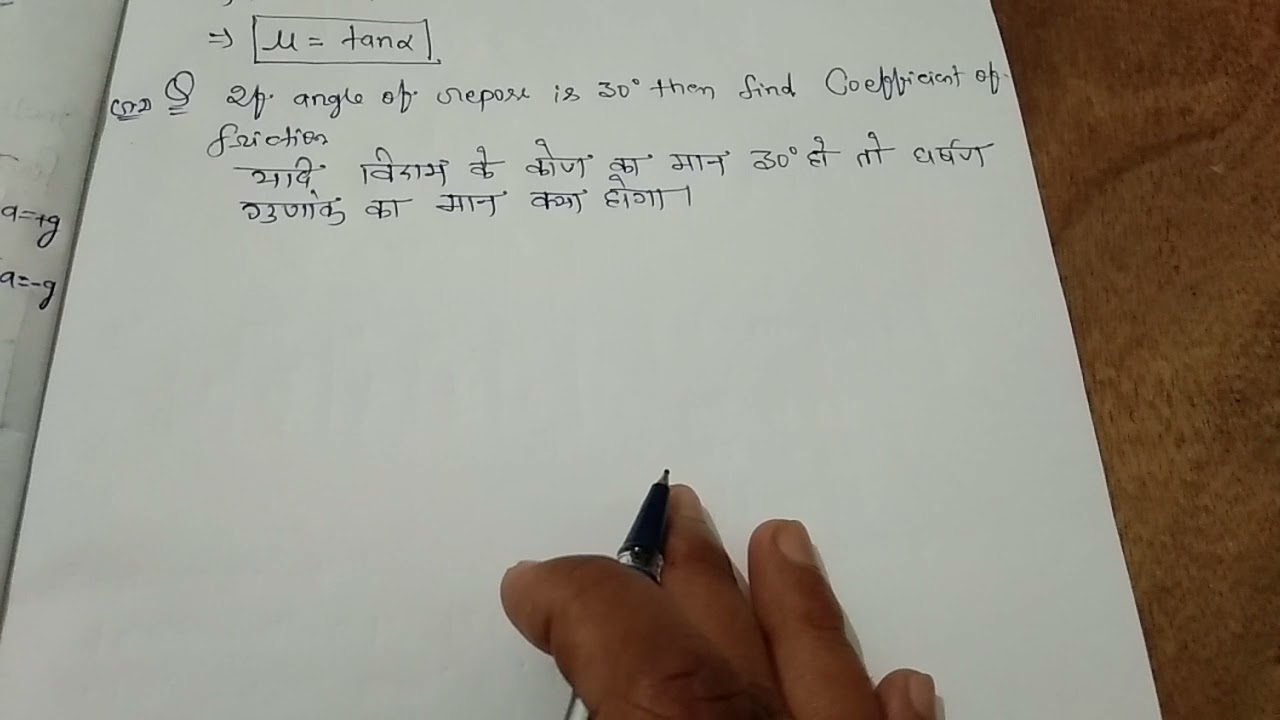 ⇒ μ = tanα
Q If angle of repose is 30° then find Coefficient of
friction
यदि विराम के कोण का मान 30° हो तो घर्षण
गुणांक का मान क्या होगा।
a=+g
a=-g